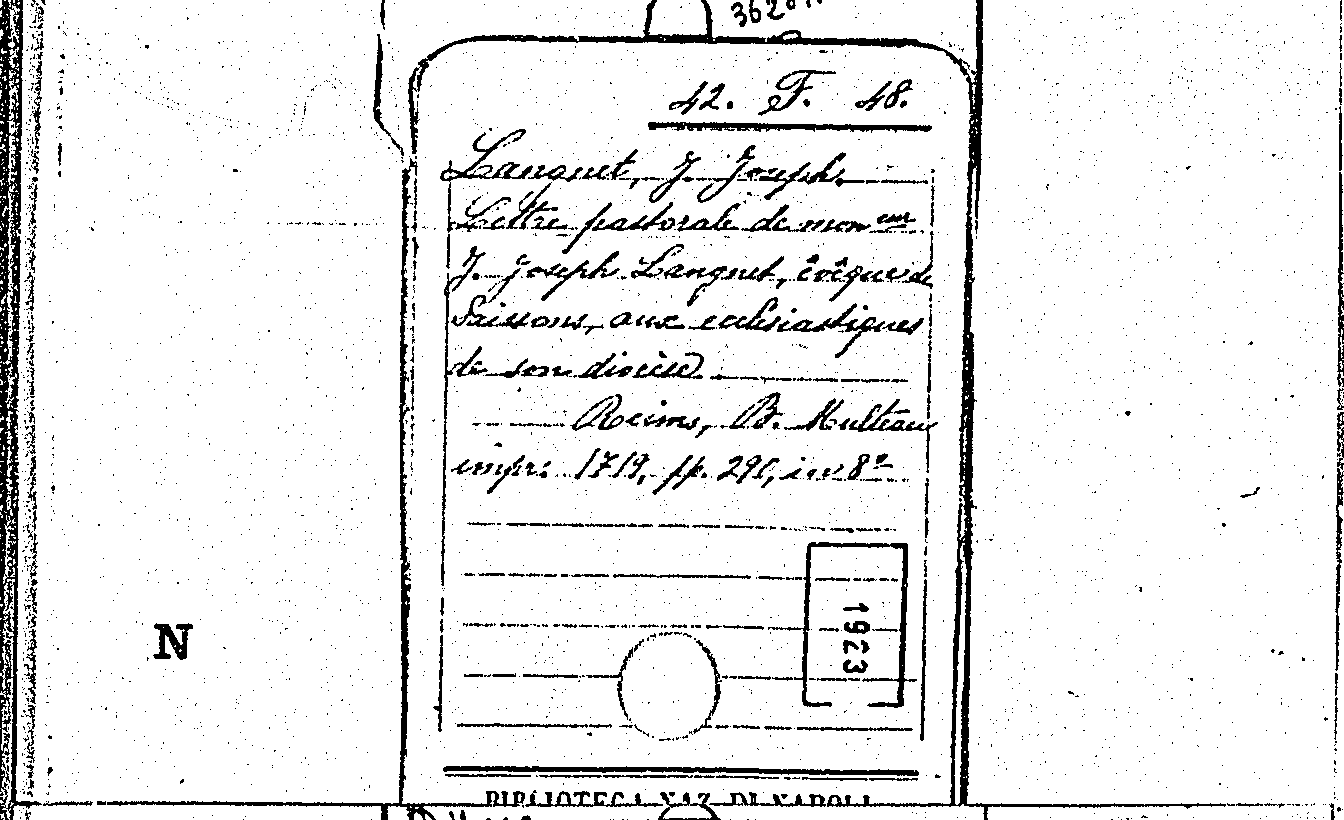 42. F. 48.
Languet, J. Joseph.
Lettre pastorale de mon eur
J. Joseph Languet, évêque de
Soissons, aux ecclésiastiques
de son diocèse
Reims, B. Multeau
impr. 1719, pp. 290, in 8º
1923
N
BIBLIOTECA NAZ. DI NAPOLI